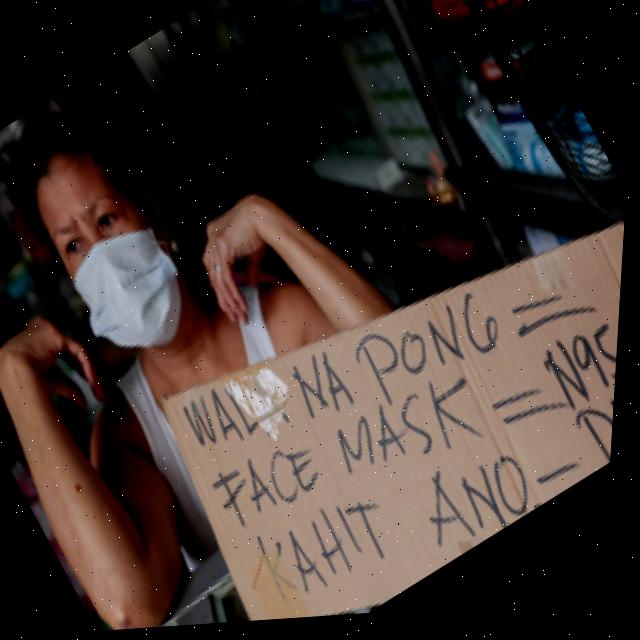 WALA NA PONG =
FACE MASK = N95
KAHIT ANO -